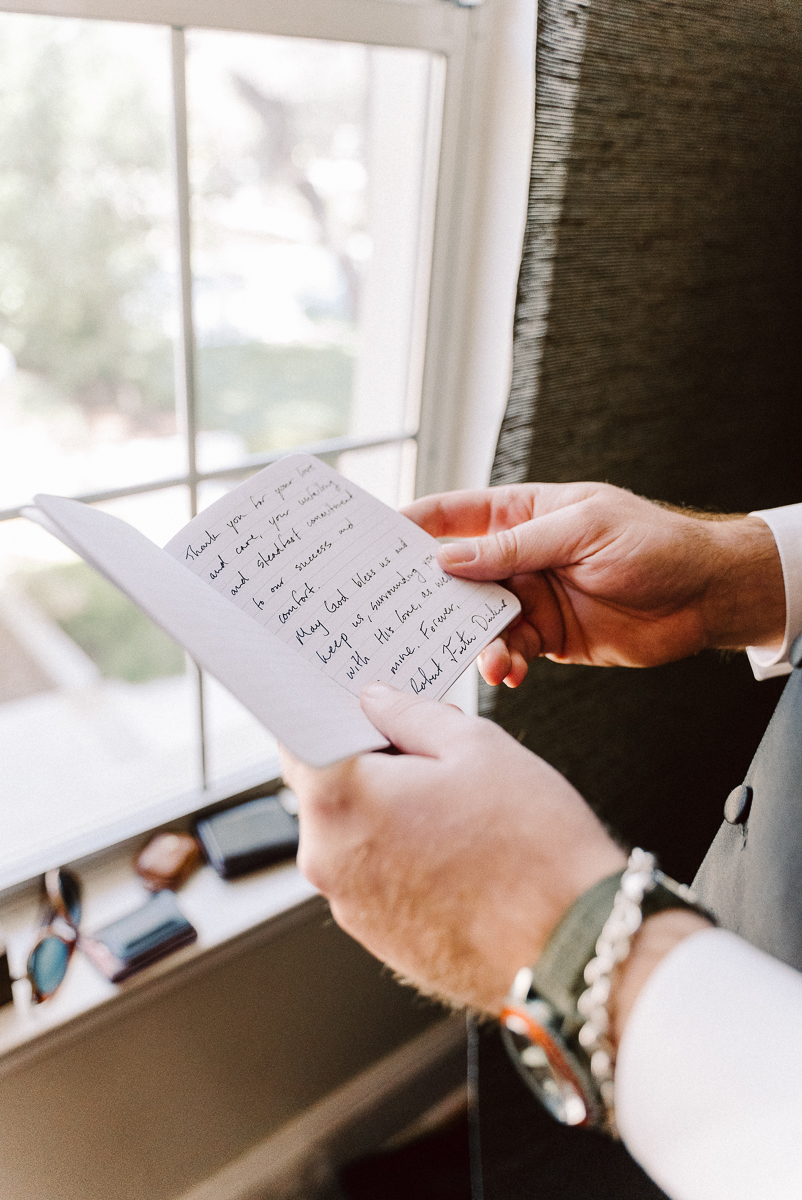 Thank you for your love
and care, your unfailing
and steadfast commitment
to our success and
comfort.
May God bless us and
keep us, surrounding you
with His love, as well
mine. Forever,
Robert